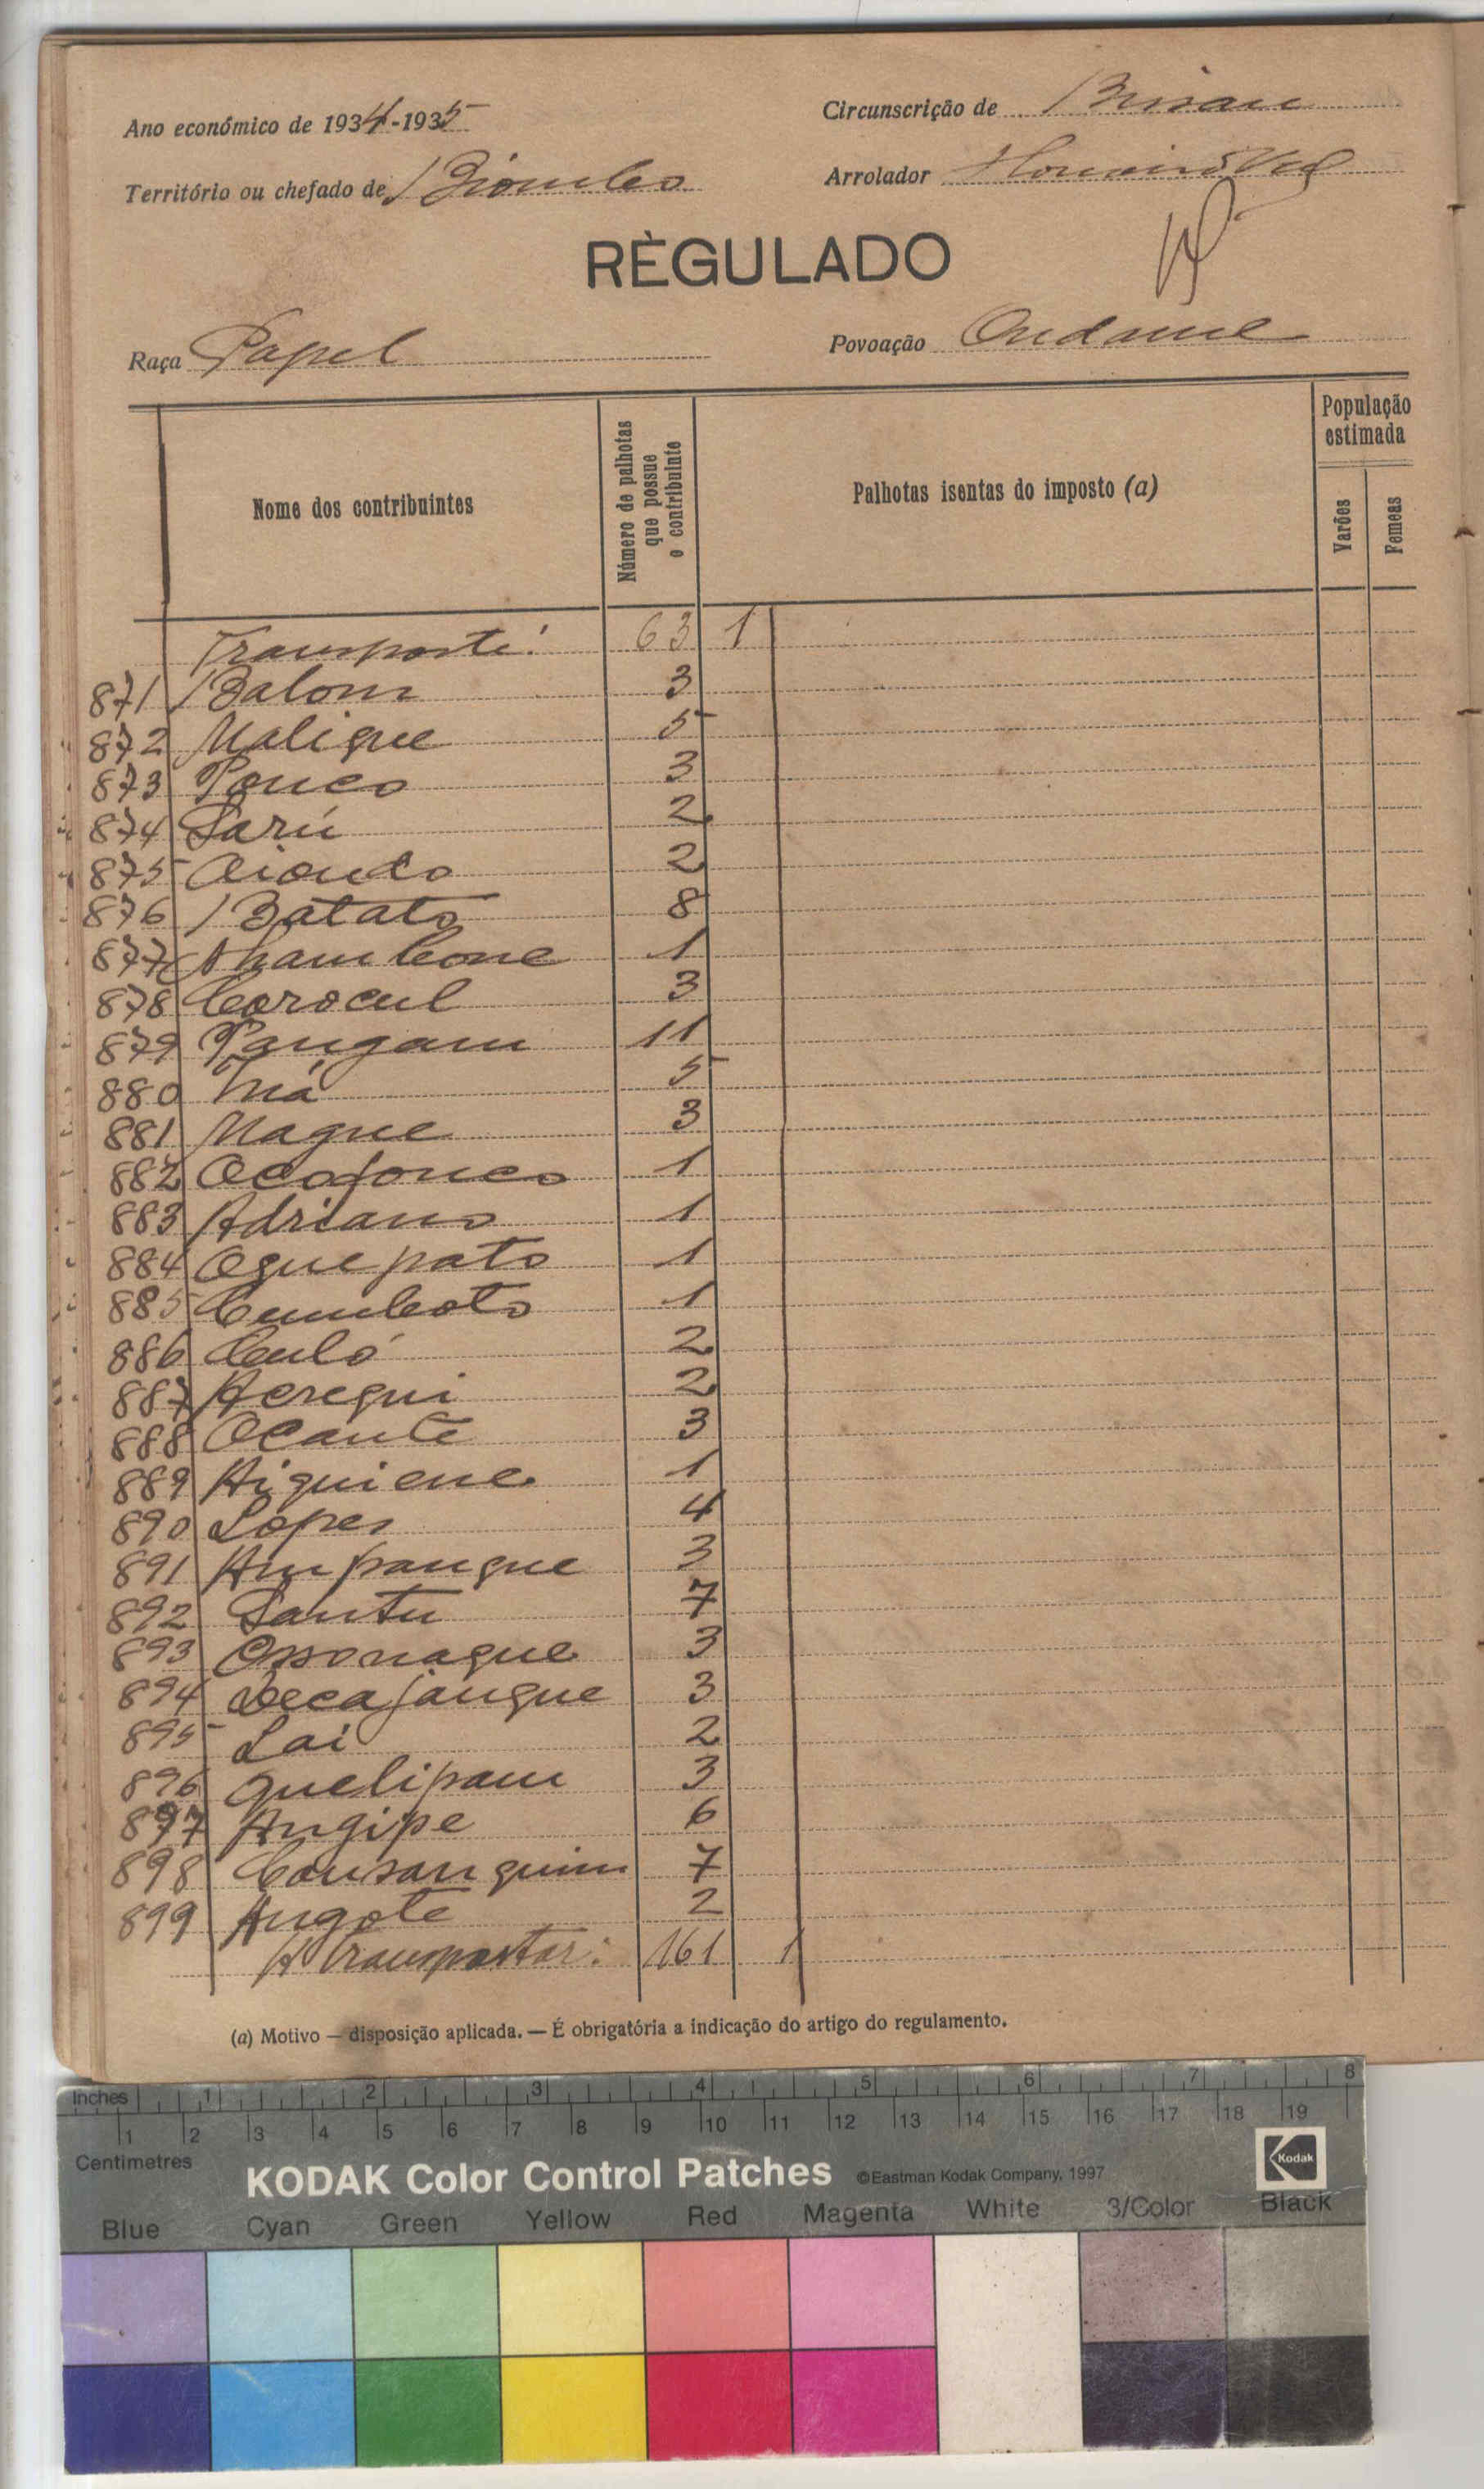 Ano económico de 1934-1935
Circunscrição de Bissau
Território ou chefado de Biombo
Arrolador
RÈGULADO
Raça Papel
Povoação Ondame
Nome dos contribuintes
Número de palhotas que possue o contribuinte
Palhotas isentas do imposto (a)
População estimada
Varões
Femeas
Transporte: 63 1
871 Balom 3
872 Malique 5
873 Pouco 3
874 Sarú 2
875 Oiondo 2
876 Batato 8
877 1
878 Corocul 3
879 Pangam 11
880 Iná 5
881 Naque 3
882 Ocofonco 1
883 Adriano 1
884 Oquepato 1
885 Cumboto 1
886 Culó 2
887 Acrequi 2
888 Ocante 3
889 Aiquiene 1
890 Lopes 4
891 Ampanque 3
892 Santu 7
893 Ossonaque 3
894 Decajanque 3
895 Lai 2
896 Quelipam 3
897 Angipe 6
898 Cousanquim 7
899 Angote 2
A transportar: 161 1
(a) Motivo — disposição aplicada. — É obrigatória a indicação do artigo do regulamento.
Inches 1 2 3 4 5 6 7 8
1 2 3 4 5 6 7 8 9 10 11 12 13 14 15 16 17 18 19
Centimetres
KODAK Color Control Patches ©Eastman Kodak Company, 1997 Kodak
Blue Cyan Green Yellow Red Magenta White 3/Color Black